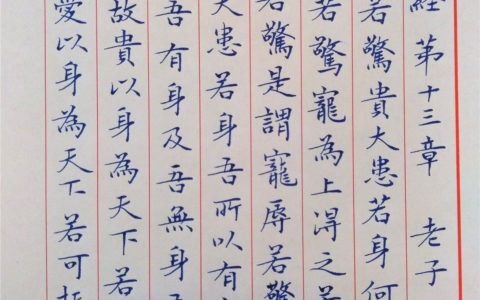 經第十三章 老子
若驚貴大患若身何
若驚寵為上得之若
若驚是謂寵辱若驚
大患若身吾所以有
吾有身及吾無身
故貴以身為天下若
愛以身為天下若可托